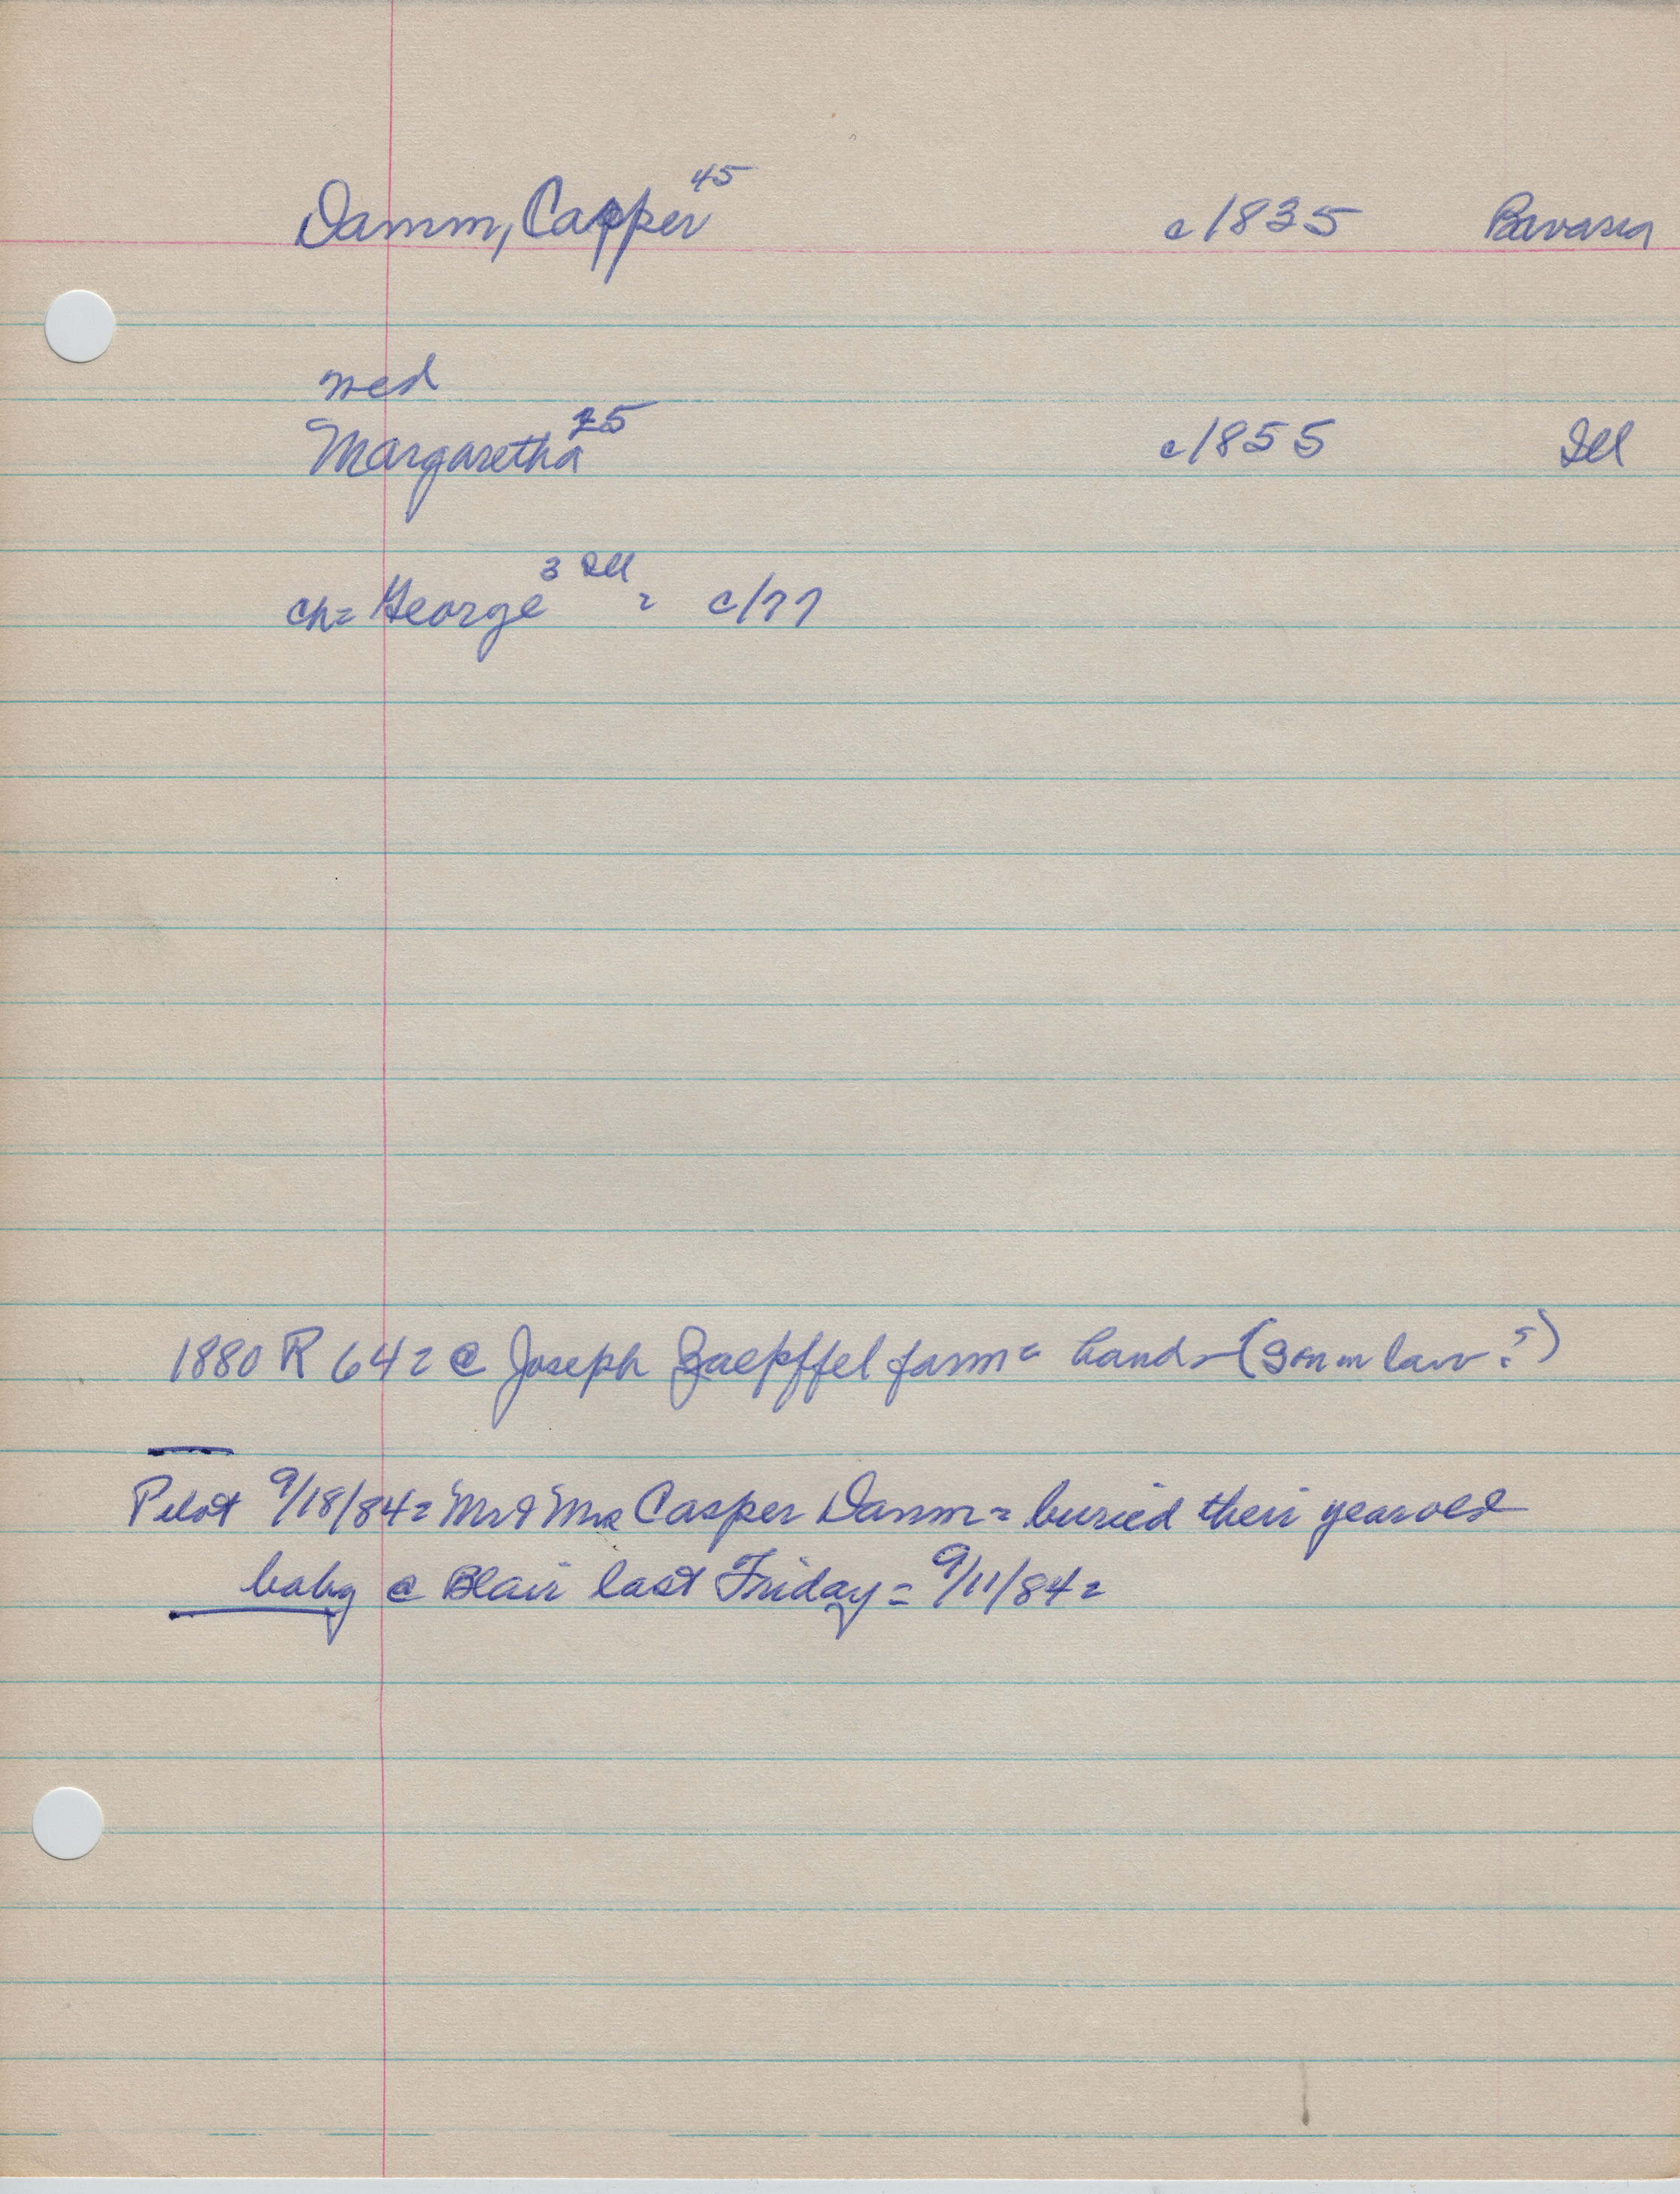 Damm, Casper 45 c1835 Bavaria
med
Margaretha 25 c1855 Ill
ch= George 3 Ill = c/77
1880 R 64= @ Joseph Zaepffel farm= hand-(son in law?)
Pilot 9/18/84= Mr & Mrs Casper Damm= buried their year old
baby @ Blair last Friday= 9/11/84=